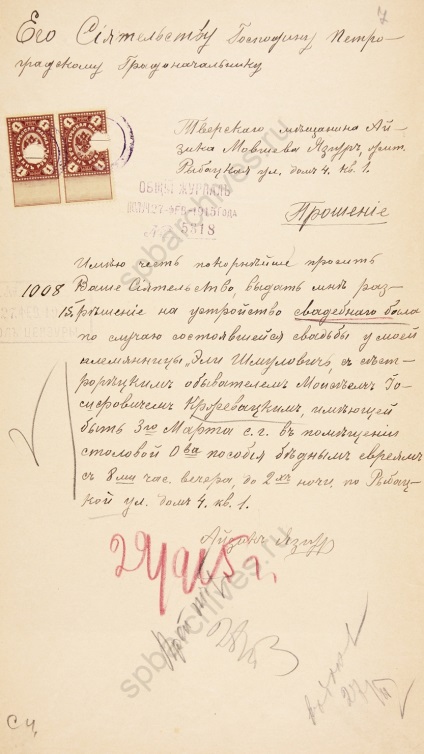 7
Его Сіятельству Господину Петро-
градскому Градоначальнику
Тверского мѣщанина Ай-
зика Мовшева Язгур, жит.
Рыбацкая ул. домъ 4. кв. 1.
ОБЩІЙ ЖУРНАЛЪ
27 ФЕВ 1915 ГОДА
№ 5318
Прошеніе
Имѣю честь покорнѣйше просить
1008 Ваше Сіятельство, выдать мнѣ раз-
15 рѣшеніе на устройство свадебнаго бала
по случаю состоявшейся свадьбы у моей
племянницы Эли Шмуловичъ, съ сѣст-
рорѣцкимъ обывателемъ Моисѣемъ Іо-
сифовичемъ имѣющей
быть 3го Марта с. г. въ помѣщеніи
столовой О-ва пособія бѣднымъ евреямъ
съ 8ми час. вечера, до 2хъ ночи, по Рыбац-
кой ул. домъ 4. кв. 1.
Айзикъ Язгур
1915 г.
28/II
27/II
spbarchives.ru
spbarchives.ru
spbarchives.ru